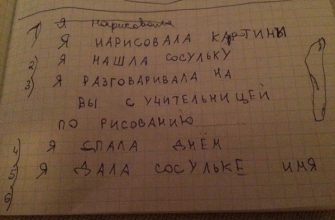 1) Я нарисовала
Я НАРИСОВАЛА КАРТИНЫ
2) Я НАШЛА СОСУЛЬКУ
3) Я РАЗГОВАРИВАЛА НА
ВЫ С УЧИТЕЛЬНИЦЕЙ
ПО РИСОВАНИЮ
4) Я СПАЛА ДНЁМ
5) Я ДАЛА СОСУЛЬКЕ ИМЯ
6)